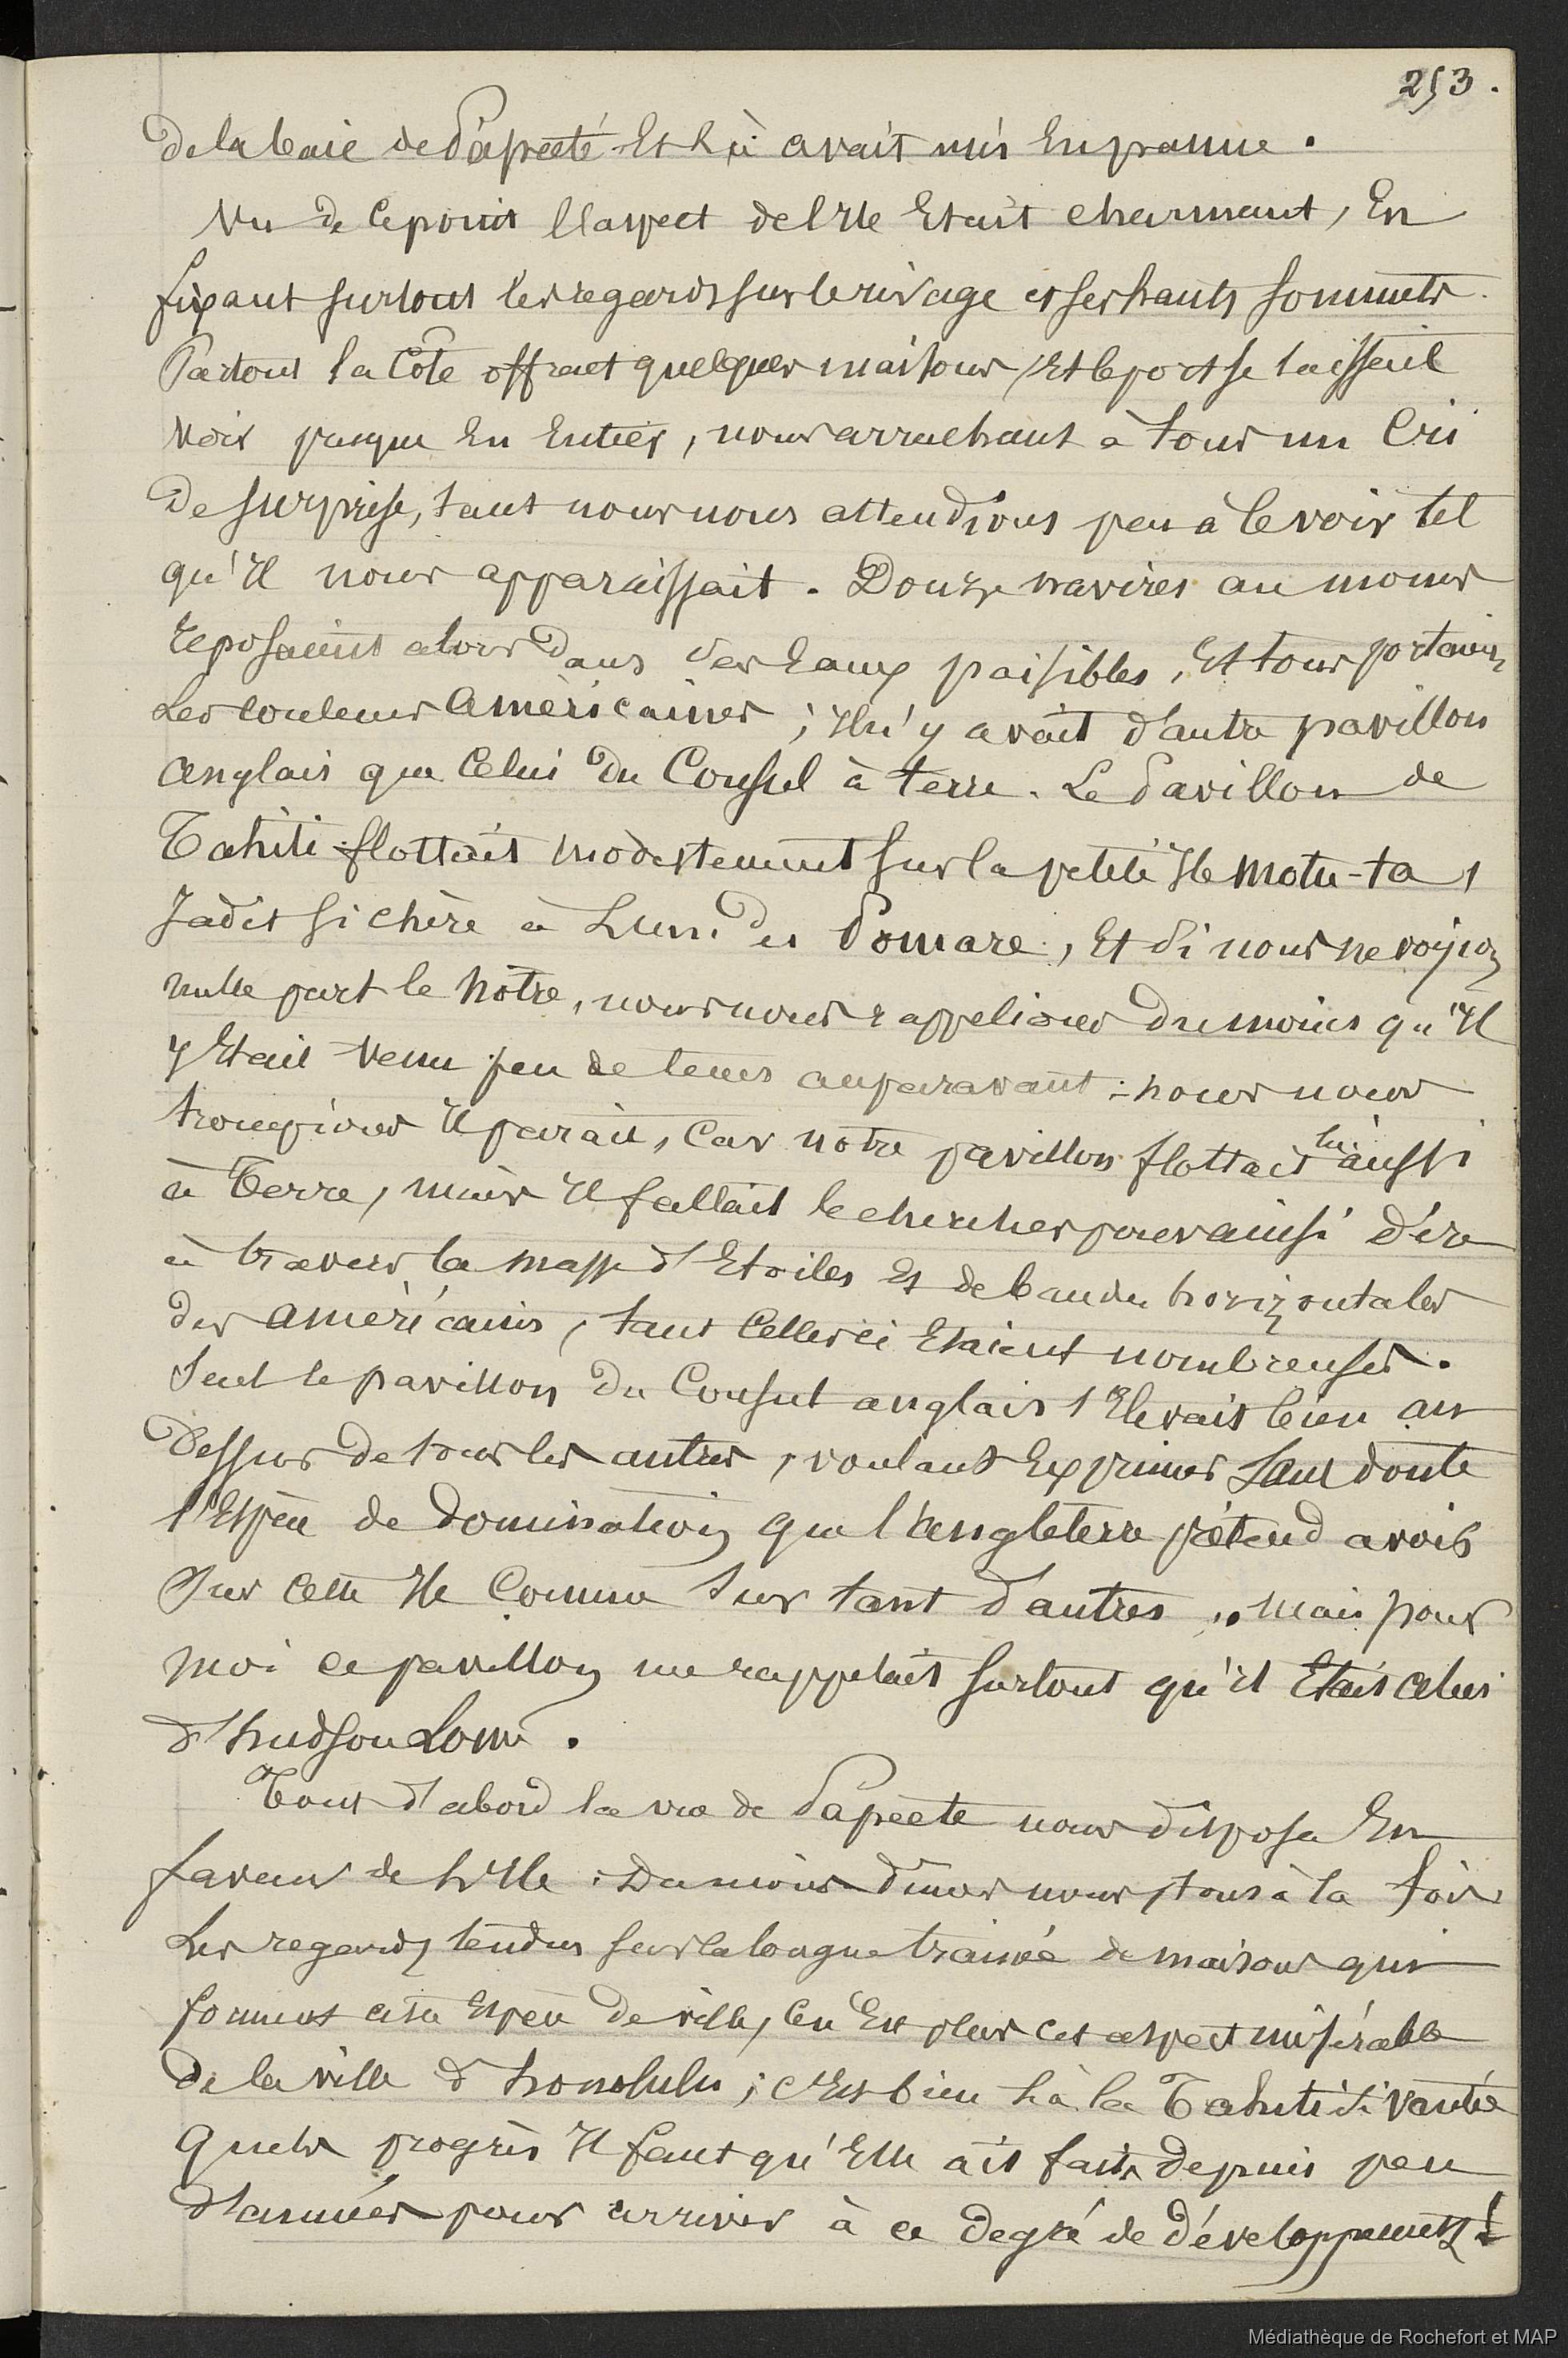 253.
de la baie de Papeete et là avait mis en panne.
Vu de ce point l'aspect de l'Ile Etait charmant, En
fixant surtout les regards sur le rivage et ses hauts sommets.
Partout la Côte offrait quelques maisons, Et le port se laissait
voir presque En Entier, nous arrachant à tous un Cri
De surprise, tant nous nous attendions peu à le voir tel
qu'Il nous apparaissait. Douze navires au moins
reposaient alors dans des Eaux paisibles, Et tous portaient
Les couleurs américaines; Il n'y avait d'autre pavillon
anglais que Celui du Consul à terre. Le Pavillon de
Tahiti flottait modestement sur la petite Ile Motu-ta,
Jadis si chère à l'un des Pomare, Et Si nous ne voyions
nulle part le nôtre, nous nous rappelions du moins qu'Il
y Etait venu peu de tems auparavant; nous nous
trompions Il parait, Car notre pavillon flottait lui aussi
à Terre, mais Il fallait le chercher pour ainsi dire
à travers la masse d'Etoiles Et de bandes horizontales
des américains, tant Celles ci Etaient nombreuses.
Seul le pavillon du Consul anglais s'Elevait bien au
Dessus de tous les autres, voulant Exprimer Sans doute
l'Espèce de domination que l'angleterre prétend avoir
Sur cette Ile Comme Sur tant d'autres,.. Mais pour
moi ce pavillon me rappelait surtout qu'il Etait celui
d'hudson Lowe.
Tout d'abord la vue de Papeete nous disposa En
faveur de l'Ile. Du moins dimes nous, tous à la fois
Les regards tendus sur la longue trainée de maisons qui
forment cette Espèce de ville, Ce n'Est plus cet aspect misérable
De la ville d'honolulu; c'Est bien là la Tahiti si vantée
Quels progrès Il faut qu'Elle ait faits depuis peu
d'années pour arriver à ce degré de développement!
Médiathèque de Rochefort et MAP